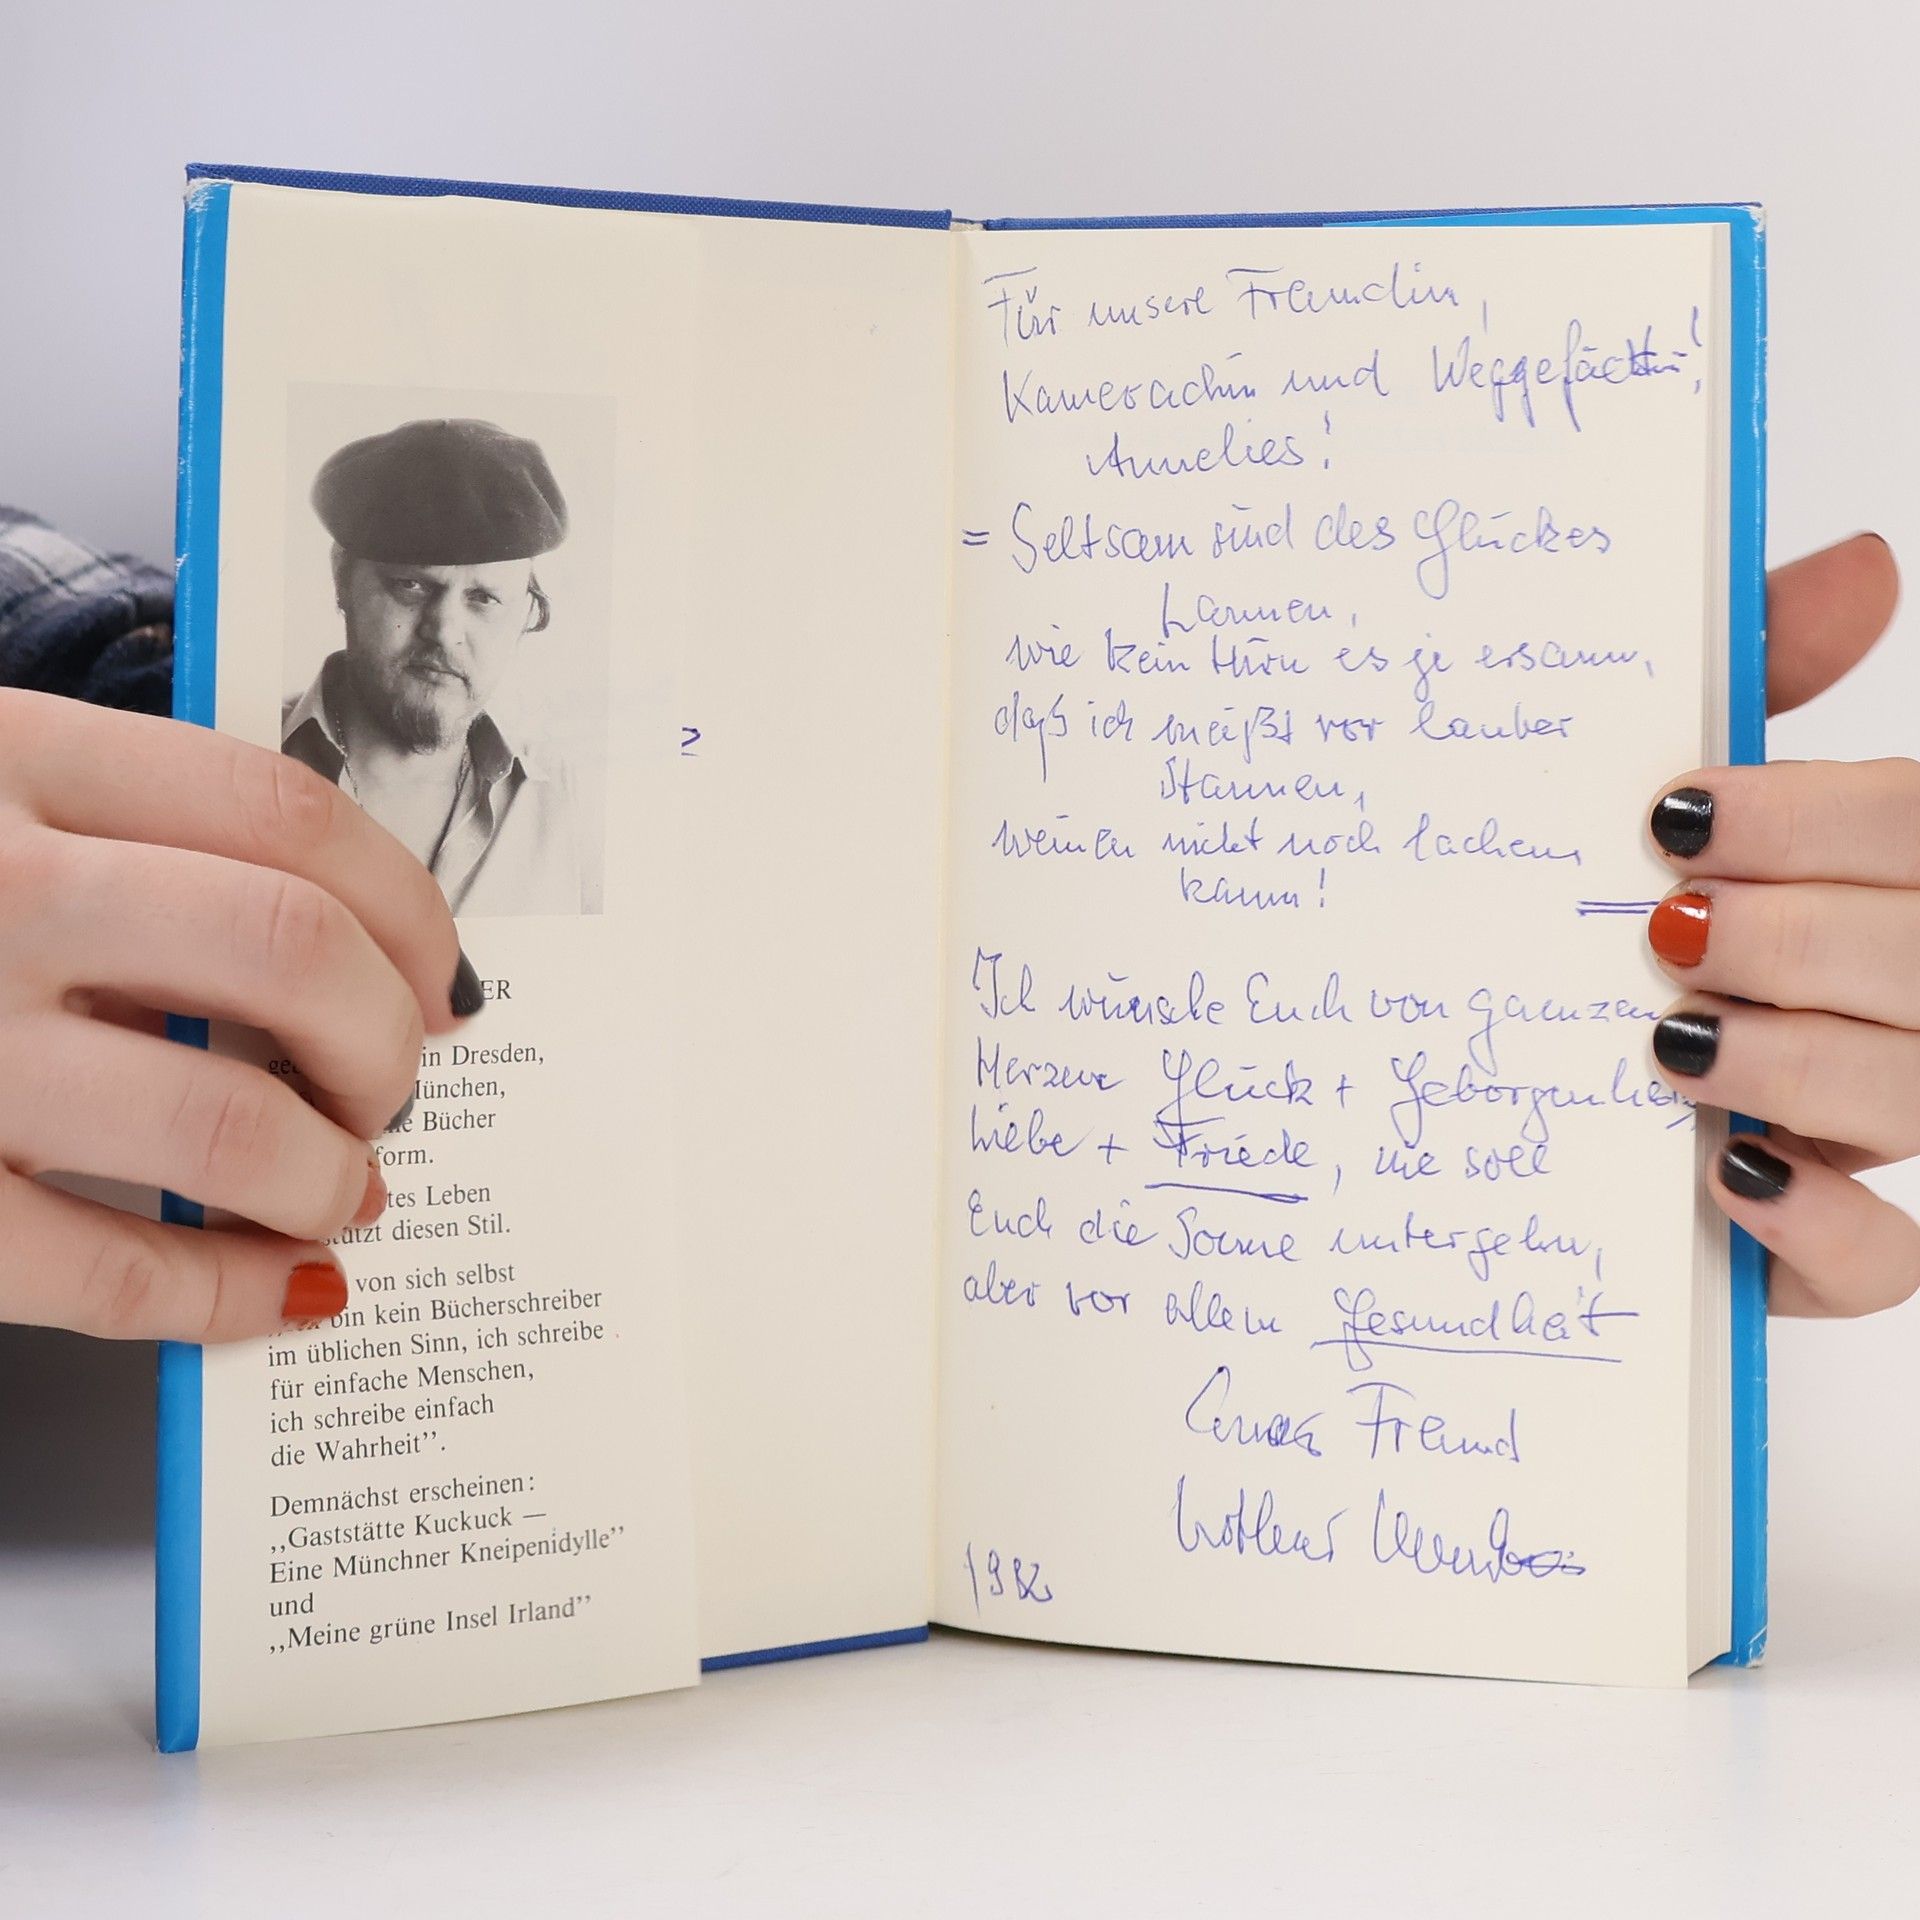 ER
in Dresden,
München,
Bücher
form.
tes Leben
stützt diesen Stil.
von sich selbst
bin kein Bücherschreiber
im üblichen Sinn, ich schreibe
für einfache Menschen,
ich schreibe einfach
die Wahrheit”.
Demnächst erscheinen:
„Gaststätte Kuckuck —
Eine Münchner Kneipenidylle”
und
„Meine grüne Insel Irland”
Für unsere Freundin,
Kameradin und
Annelies!
= Seltsam sind des Glückes
Launen,
wie kein Hirn es je ersann,
daß ich meißt vor lauter
Staunen,
weinen nicht noch lachen
kann!
Ich wünsche Euch von ganzem
Herzen Glück + Geborgenheit,
Liebe + Friede, nie soll
Euch die Sonne untergehn,
aber vor allem Gesundheit
Euer Freund
Lothar
1982